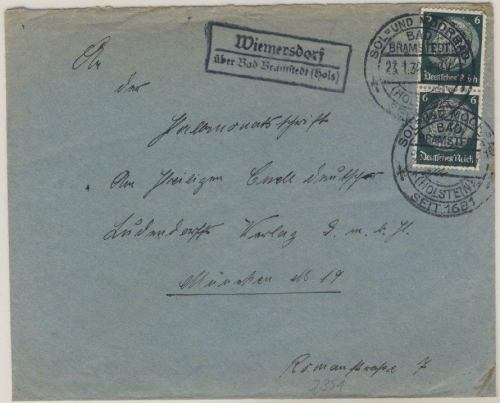 An
der
Wiemersdorf
über Bad Bramstedt (Holst)
Halbmonatsschrift
Am Heiligen Quell deutscher
Ludendorffs Verlag G. m. b. H.
München M 19
Romanstrasse 7
2351
6
Deutsches Reich
6
Deutsches Reich
SOL- UND MOORBAD
BAD
BRAMSTEDT
23.1.34
(HOLSTEIN)
SOL- UND MOORBAD
BAD
BRAMSTEDT
(HOLSTEIN)
SEIT 1681